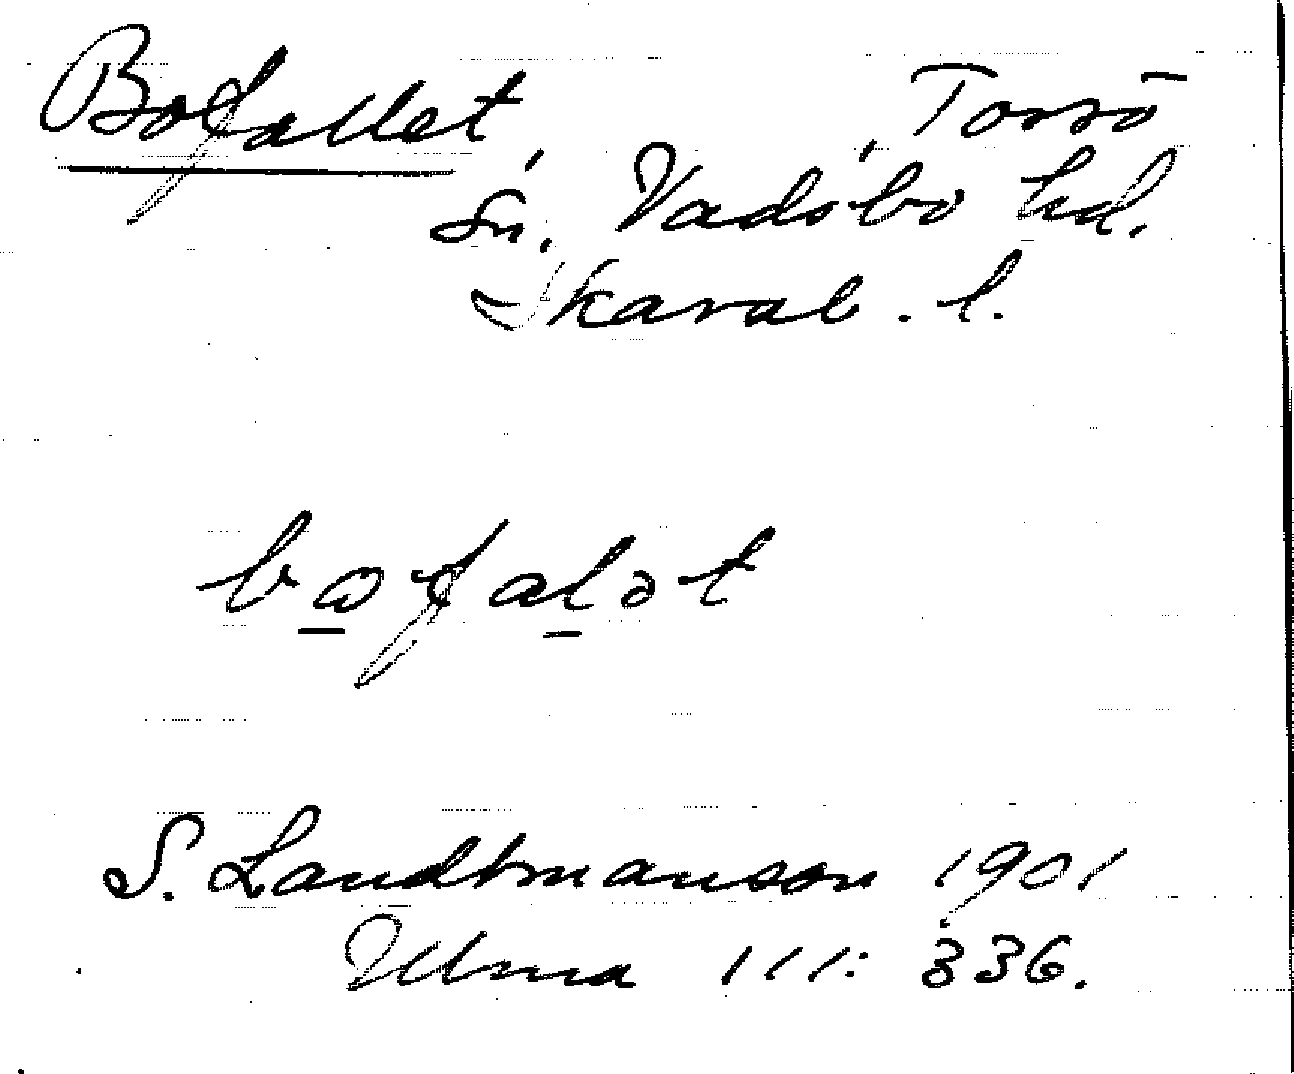 Bofallet, Torsö
sn. Vadsbo hd.
Skarab. l.
bɷfalət
S. Landtmanson 1901
Ulma 111: 336.